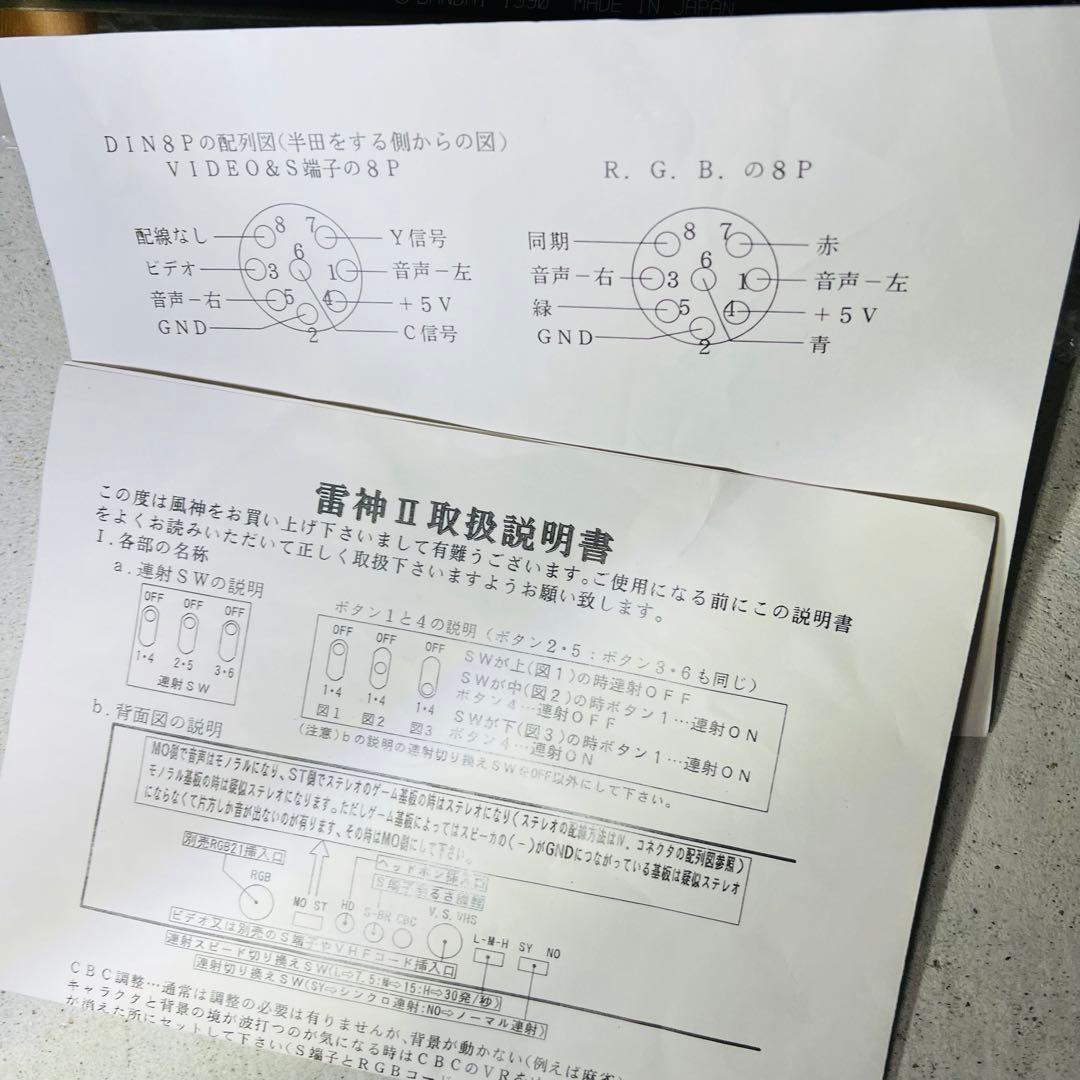 © BANDAI 1990 MADE IN JAPAN
DIN8Pの配列図(半田をする側からの図)
VIDEO&S端子の8P
R.G.B.の8P
配線なし 8 7 Y信号
ビデオ 3 6 1 音声-左
音声-右 5 4 +5V
GND 2 C信号
同期 8 7 赤
音声-右 3 6 1 音声-左
緑 5 4 +5V
GND 2 青
雷神Ⅱ取扱説明書
この度は風神をお買い上げ下さいまして有難うございます。ご使用になる前にこの説明書
をよくお読みいただいて正しく取扱下さいますようお願い致します。
Ⅰ.各部の名称
a.連射SWの説明
OFF OFF OFF
1・4 2・5 3・6
連射SW
ボタン1と4の説明(ボタン2・5:ボタン3・6も同じ)
OFF OFF OFF
1・4 1・4 1・4
図1 図2 図3
SWが上(図1)の時連射OFF
SWが中(図2)の時ボタン1…連射ON
ボタン4…連射OFF
SWが下(図3)の時ボタン1…連射ON
ボタン4…連射ON
(注意)bの説明の連射切り換えSWをOFF以外にして下さい。
b.背面図の説明
MO側で音声はモノラルになり、ST側でステレオのゲーム基板の時はステレオになり(ステレオの配線方法はⅣ.コネクタの配列図参照)
モノラル基板の時は疑似ステレオになります。ただしゲーム基板によってはスピーカの(-)がGNDにつながっている基板は疑似ステレオ
にならなくて片方しか音が出ないのが有ります、その時はMO側にして下さい。
別売RGB21挿入口
ヘッドホン挿入口
S端子明るさ調整
RGB
MO ST
HD
S-BR CBC
V.S.VHS
L-M-H
SY NO
ビデオ又は別売のS端子やVHFコード挿入口
連射スピード切り換えSW(L⇨7.5:M⇨15:H⇨30発/秒)
連射切り換えSW(SY⇨シンクロ連射:NO⇨ノーマル連射)
CBC調整…通常は調整の必要は有りませんが、背景が動かない(例えば麻雀)
キャラクタと背景の境が波打つのが気になる時はCBCのVRを
が消えた所にセットして下さい(S端子とRGBコー